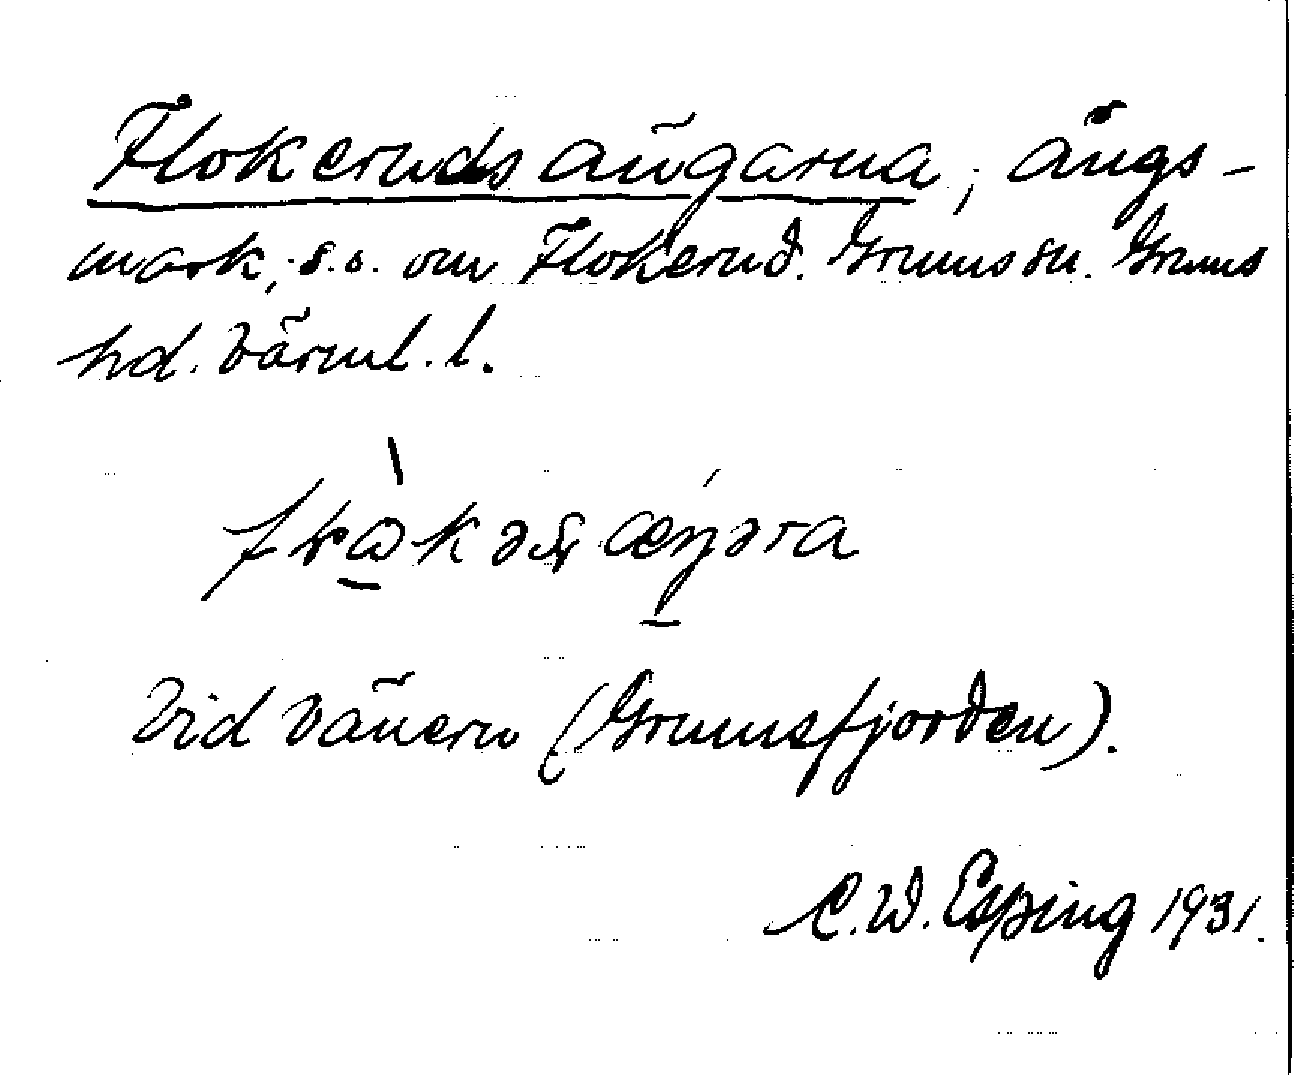 Flokerudsängarna, ängs-
mark, s.o. om Flokerud. Grums sn. Grums
hd. Värml. l.
Vid Vänern (Grumsfjorden).
C.W. Esping 1931.